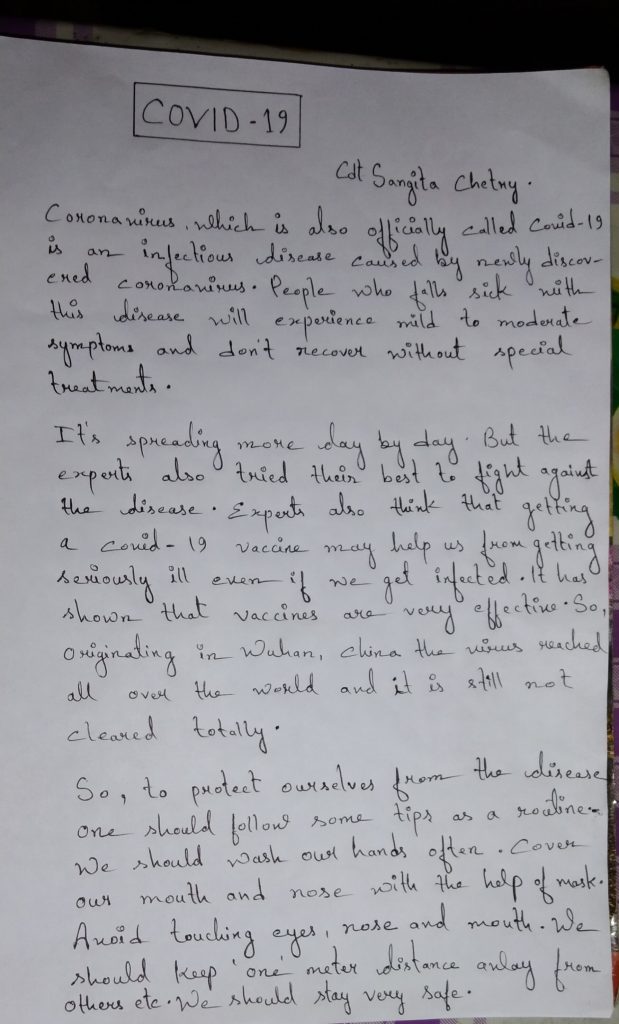 COVID-19
Cdt Sangita Chetry.
Coronavirus, which is also officially called Covid-19
is an infectious disease caused by newly discov-
ered coronavirus. People who falls sick with
this disease will experience mild to moderate
symptoms and don't recover without special
treatments.
It's spreading more day by day. But the
experts also tried their best to fight against
the disease. Experts also think that getting
a covid-19 vaccine may help us from getting
seriously ill even if we get infected. It has
shown that vaccines are very effective. So,
originating in Wuhan, china the virus reached
all over the world and it is still not
cleared totally.
So, to protect ourselves from the disease
one should follow some tips as a routine.
We should wash our hands often. Cover
our mouth and nose with the help of mask.
Avoid touching eyes, nose and mouth. We
should keep 'one' meter distance away from
others etc. We should stay very safe.